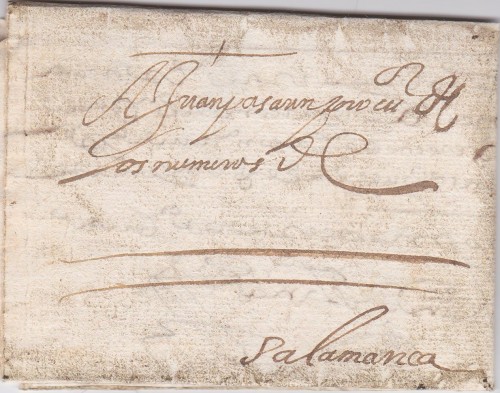 A Juan pasarin procu.or de
los numeros de
Salamanca